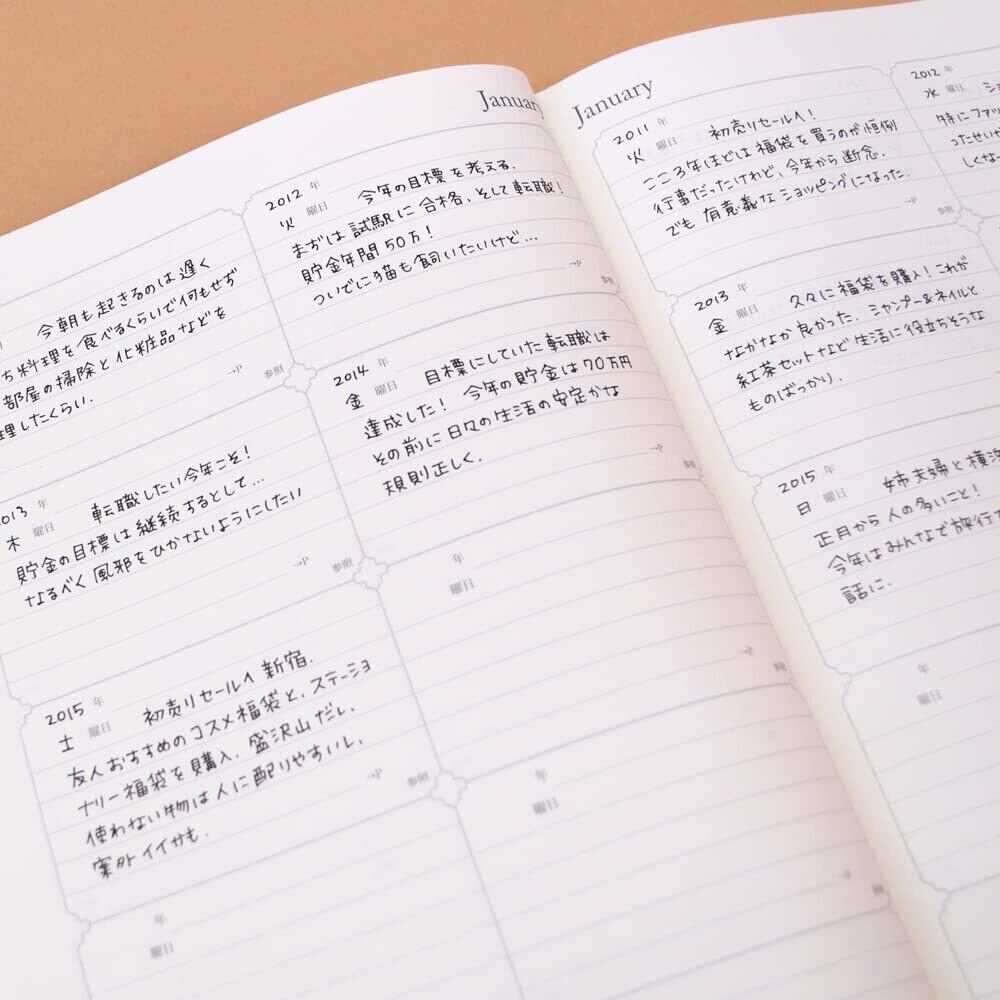 January
今朝も起きるのは遅く
ち料理を食べるくらいで何もせず
部屋の掃除と化粧品などを
理したくらい.
→P 参照
2012年
火曜日 今年の目標を考える.
まずは試験に合格、そして転職!
貯金年間50万!
ついでに猫も飼いたいけど…
→P 参照
2013年
木曜日 転職したい今年こそ!
貯金の目標は継続するとして…
なるべく風邪をひかないようにしたい
→P 参照
2014年
金曜日 目標にしていた転職は
達成した! 今年の貯金は70万円
その前に日々の生活の安定かな
規則正しく.
→P 参照
2015年
土曜日 初売りセールへ新宿.
友人おすすめのコスメ福袋と、ステーショ
ナリー福袋を購入. 盛沢山だし、
使わない物は人に配りやすいし、
案外イイかも.
→P 参照
年
曜日
→P
年
曜日
→P
年
曜日
January
2011年
火曜日 初売りセールへ!
ここ3年ほどは福袋を買うのが恒例
行事だったけれど、今年から断念.
でも有意義なショッピングになった.
→P 参照
2012年
水曜日 ショ
特にファッ
ったせいか
しくなー
2013年
金曜日 久々に福袋を購入! これが
なかなか良かった. シャンプー&ネイルと
紅茶セットなど生活に役立ちそうな
ものばっかり.
2015年
日曜日 姉夫婦と横浜
正月から人の多いこと!
今年はみんなで旅行
話に.
年
曜日